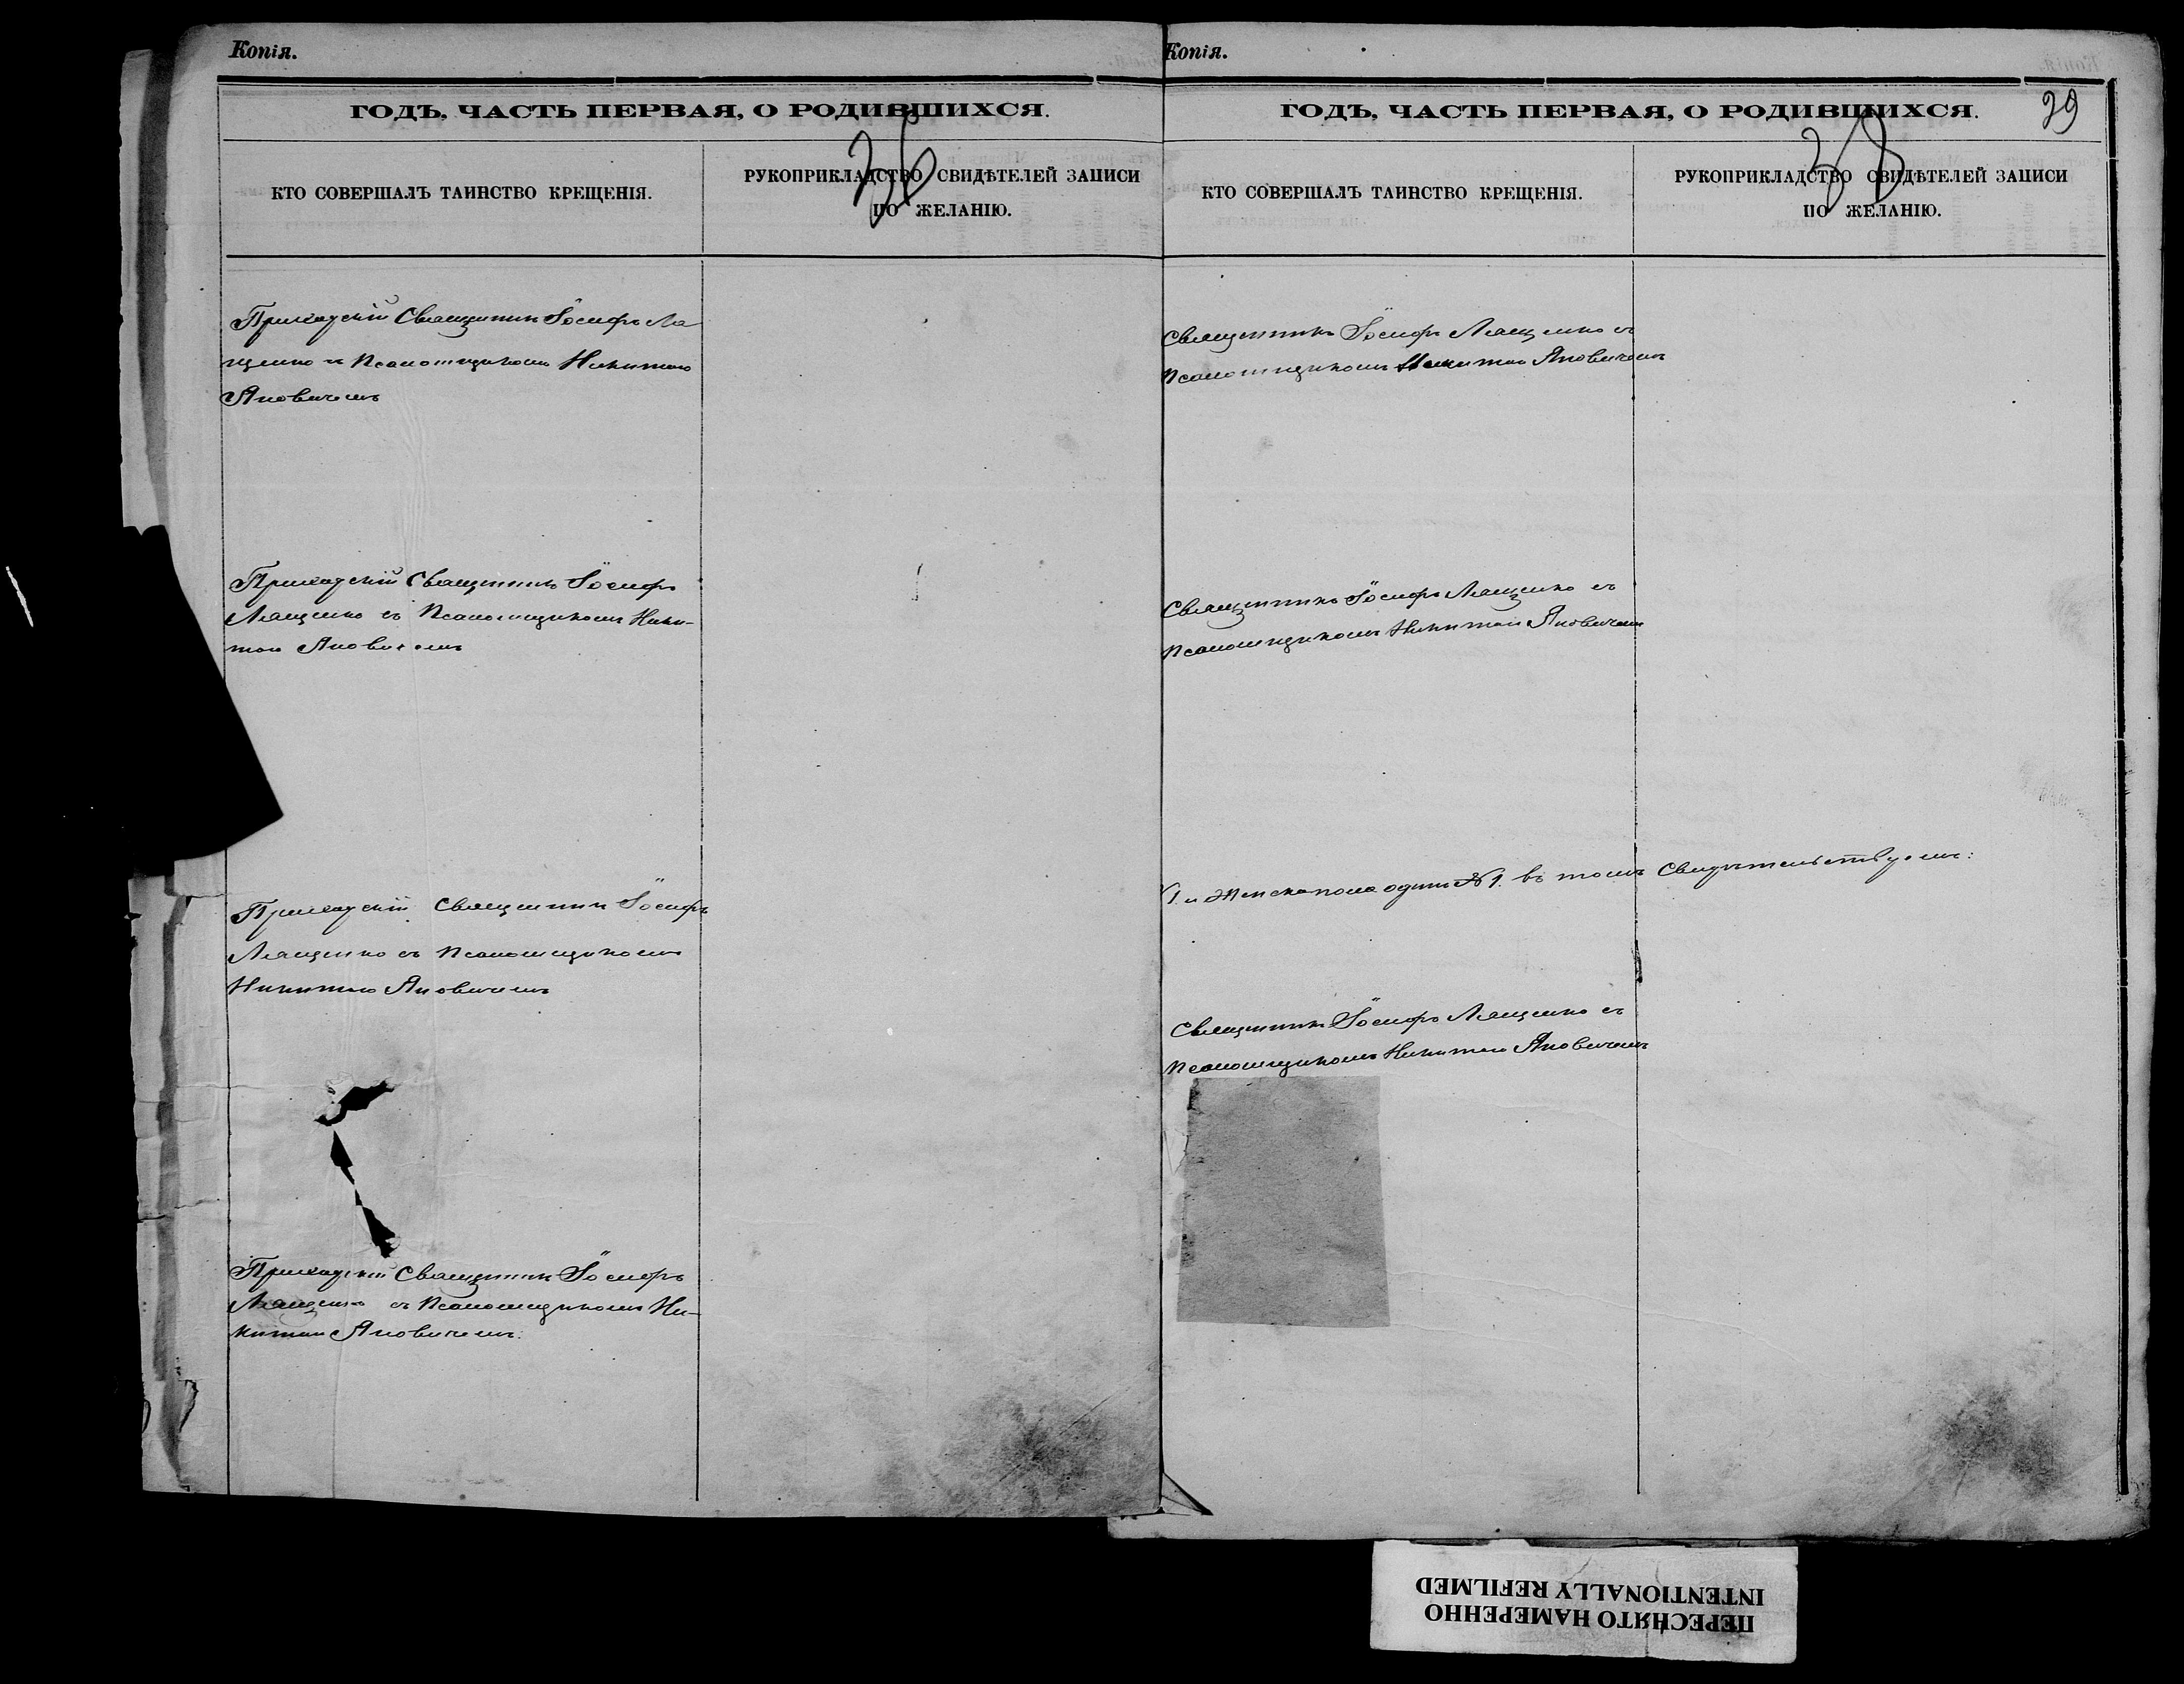 Копія.
ГОДЪ, ЧАСТЬ ПЕРВАЯ, О РОДИВШИХСЯ.
36
КТО СОВЕРШАЛЪ ТАИНСТВО КРЕЩЕНІЯ.
РУКОПРИКЛАДСТВО СВИДѢТЕЛЕЙ ЗАПИСИ
ПО ЖЕЛАНІЮ.
Приходскій Священникъ Іосифъ Ля
щенко съ Псаломщикомъ Никитою
Яновичемъ
Приходскій Священникъ Іосифъ
Лященко съ Псаломщикомъ Ники-
тою Яновичемъ
Приходскій Священникъ Іосифъ
Лященко съ Псаломщикомъ
Никитою Яновичемъ
Приходскій Священникъ Іосифъ
Лященко съ Псаломщикомъ Ни-
китою Яновичемъ.
Копія.
ГОДЪ, ЧАСТЬ ПЕРВАЯ, О РОДИВШИХСЯ.
39
38
КТО СОВЕРШАЛЪ ТАИНСТВО КРЕЩЕНІЯ.
РУКОПРИКЛАДСТВО СВИДѢТЕЛЕЙ ЗАПИСИ
ПО ЖЕЛАНІЮ.
Священникъ Іосифъ Лященко съ
Псаломщикомъ Никитою Яновичемъ
Священникъ Іосифъ Лященко съ
Псаломщикомъ Никитою Яновичемъ
1. и Женска пола одинъ № 1. въ томъ Свидѣтельствуемъ:
Священникъ Іосифъ Лященко съ
Псаломщикомъ Никитою Яновичемъ
ПЕРЕСНЯТО НАМЕРЕННО
INTENTIONALLY REFILMED